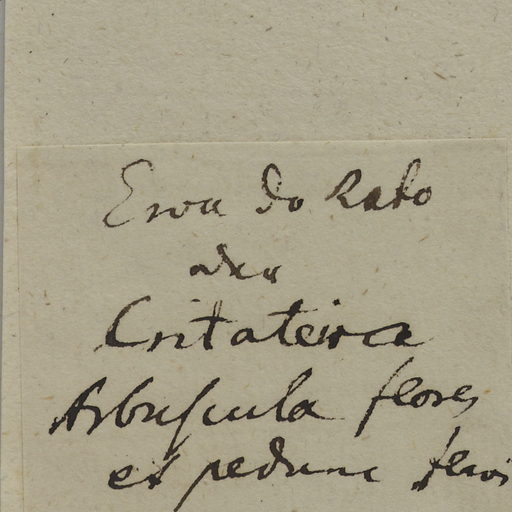 Erva do Rato
Critateira
Arbuscula flores
et pedunc